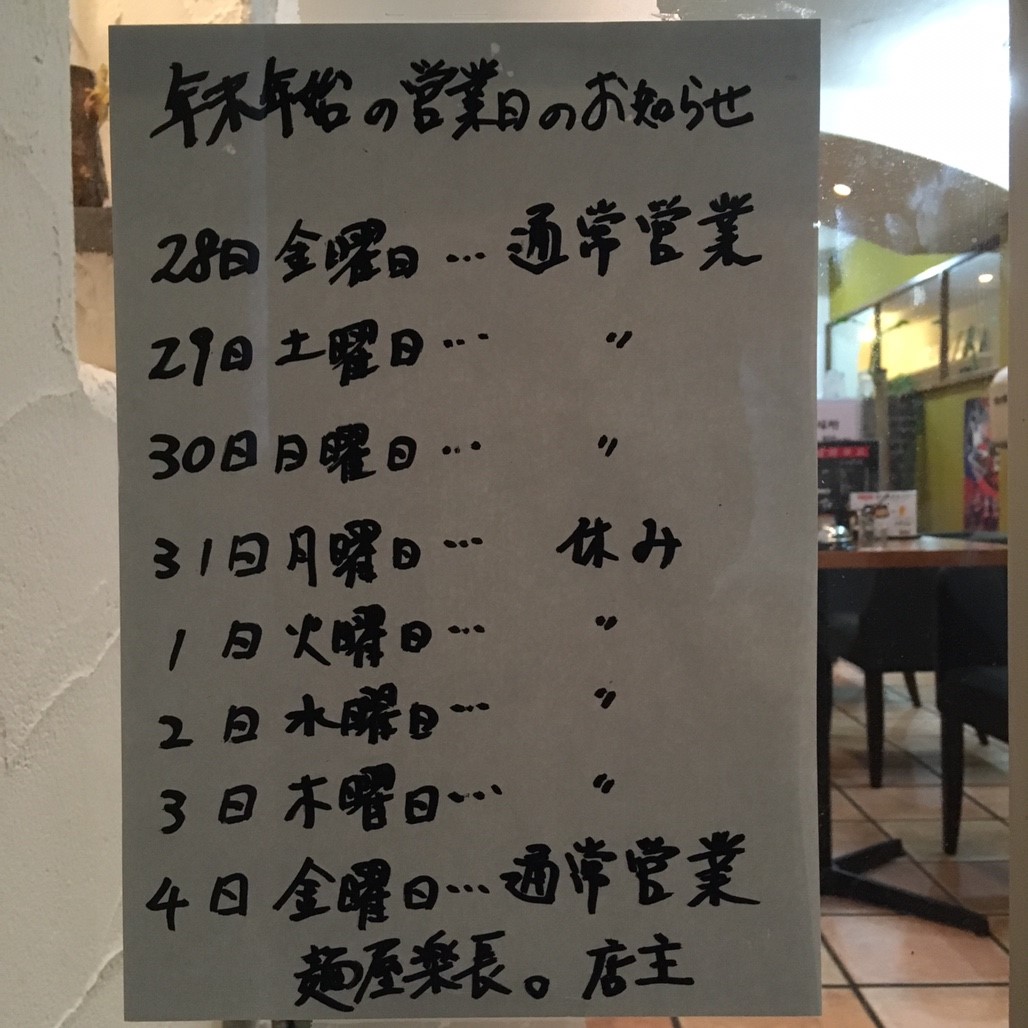 年末年始の営業日のお知らせ
28日金曜日…通常営業
29日土曜日… 〃
30日日曜日… 〃
31日月曜日… 休み
1日火曜日… 〃
2日水曜日… 〃
3日木曜日… 〃
4日金曜日…通常営業
麺屋楽長。店主